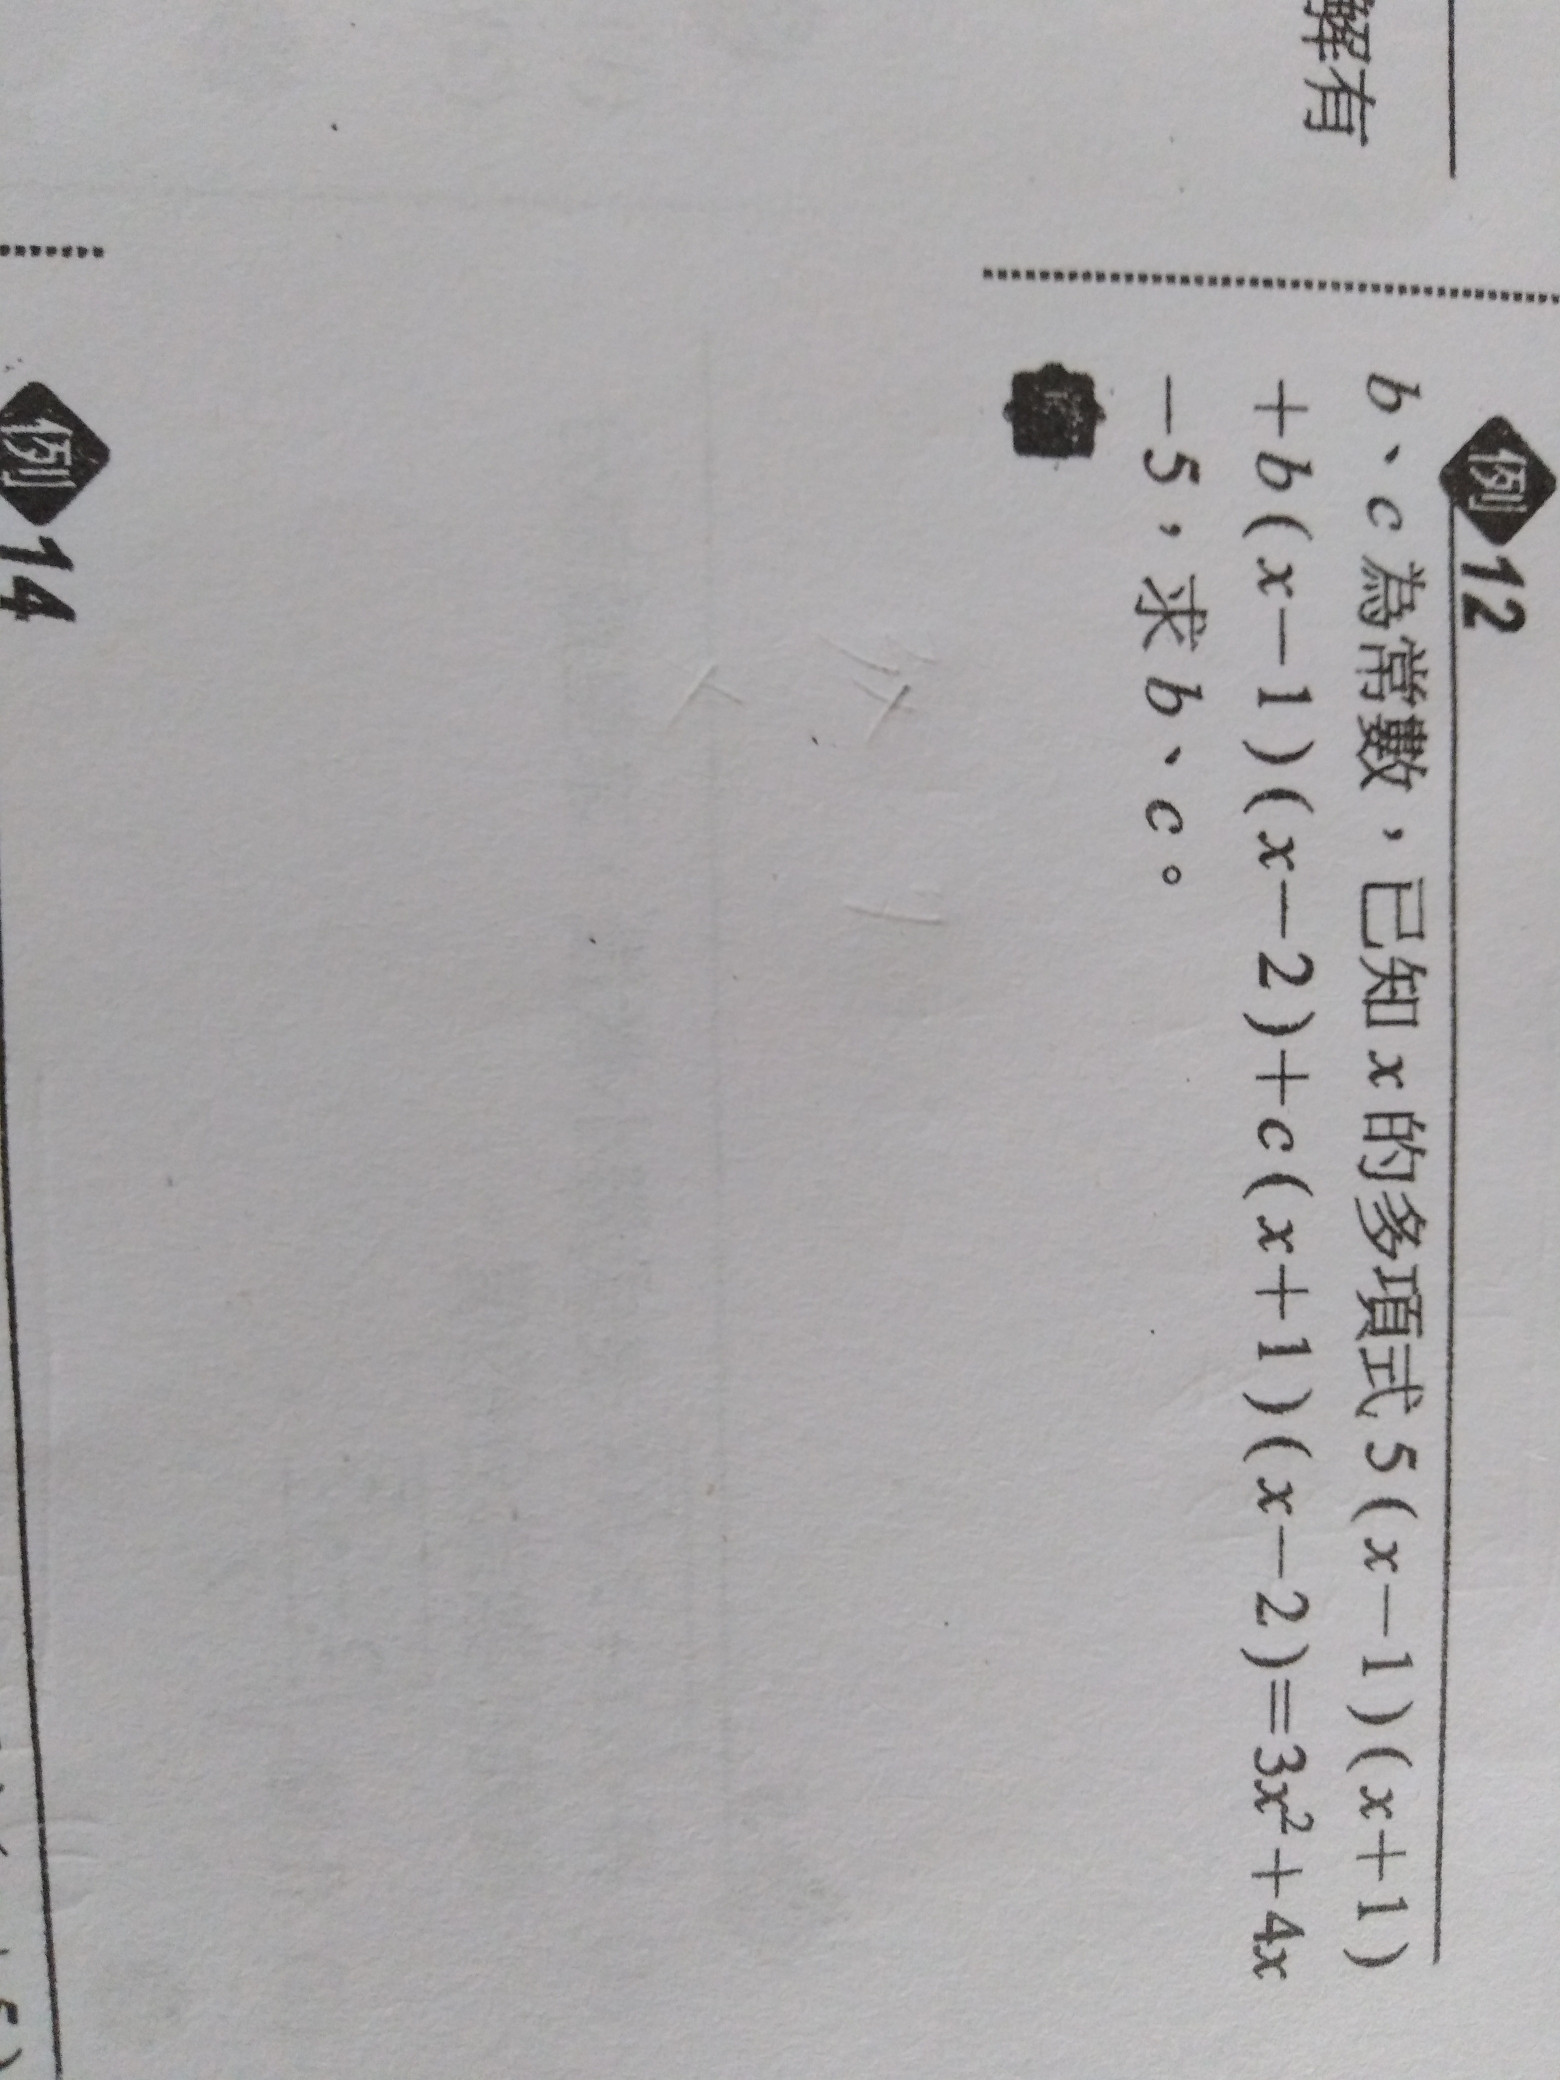 解有
例12
b、c為常數，已知x的多項式5(x-1)(x+1)
+b(x-1)(x-2)+c(x+1)(x-2)=3x²+4x
-5，求b、c。
例14